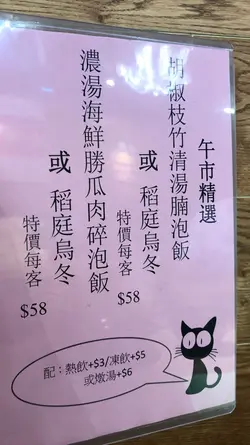 午市精選
胡淑枝竹清湯腩泡飯
或 稻庭烏冬
特價每客
$58
濃湯海鮮勝瓜肉碎泡飯
或 稻庭烏冬
特價每客
$58
配：熱飲+$3/凍飲+$5
或燉湯+$6